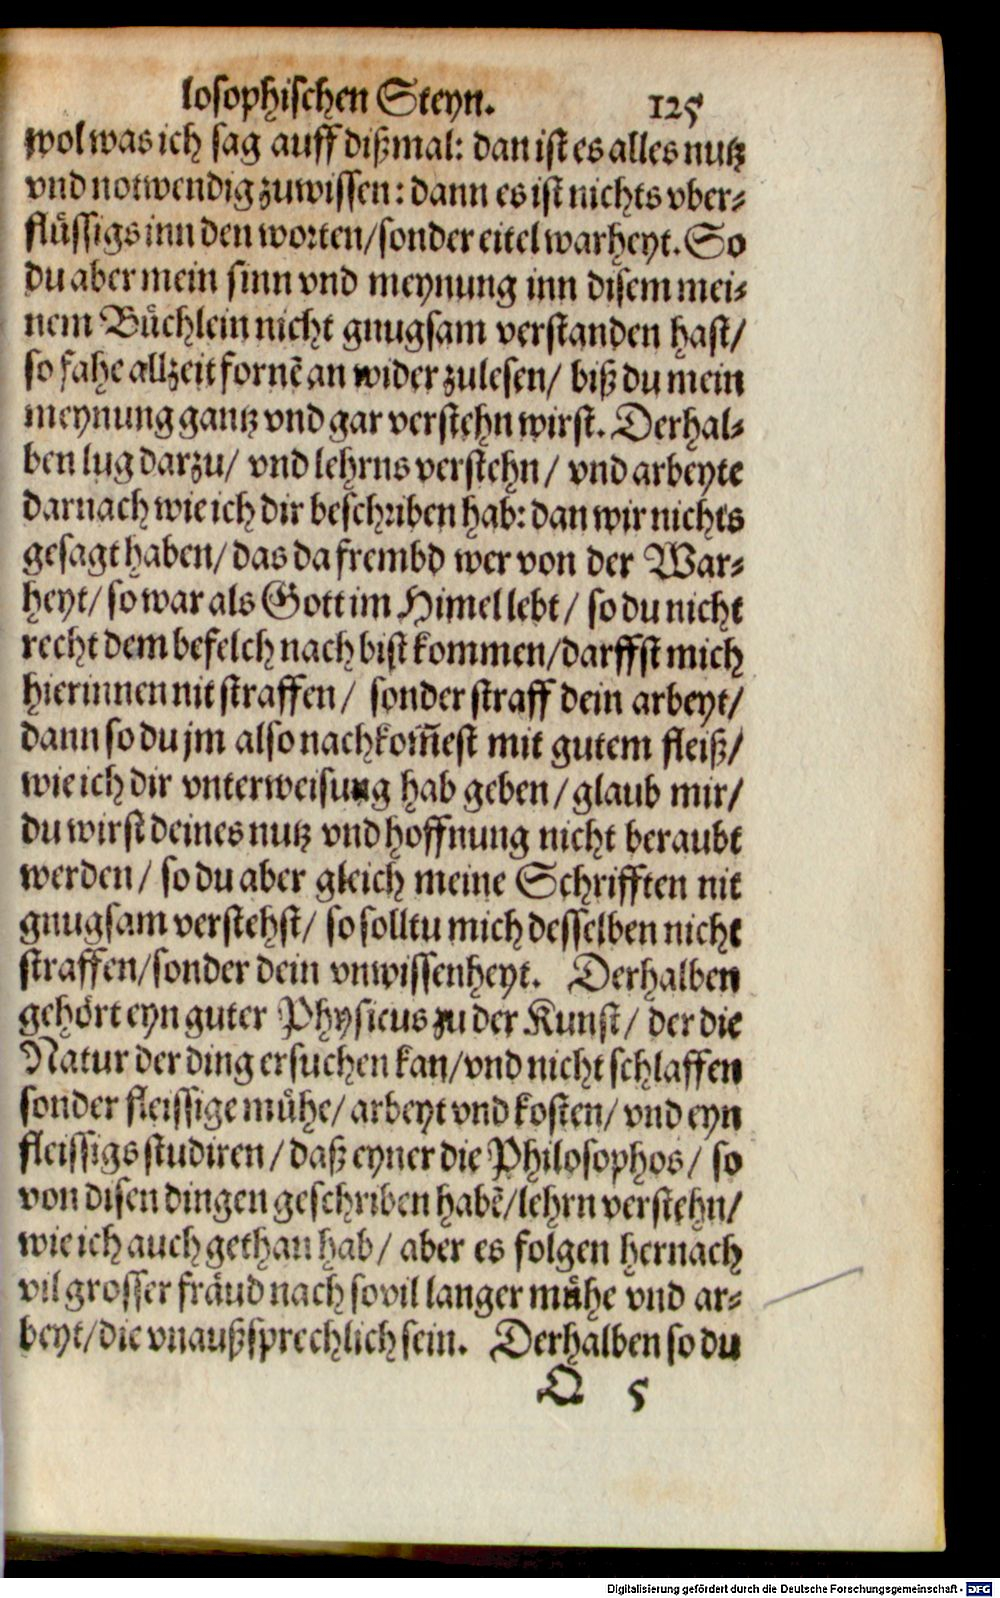 losophischen Steyn. 125
wol was ich sag auff dißmal: dan ist es alles nutz
vnd notwendig zuwissen: dann es ist nichts vber-
flüssigs inn den worten/ sonder eitel warheyt. So
du aber mein sinn vnd meynung inn disem mei-
nem Büchlein nicht gnugsam verstanden hast/
so fahe allzeit fornē an wider zulesen/ biß du mein
meynung gantz vnd gar verstehn wirst. Derhal-
ben lug darzu/ vnd lehrns verstehn/ vnd arbeyte
darnach wie ich dir beschriben hab: dan wir nichts
gesagt haben/ das da frembd wer von der War-
heyt/ so war als Gott im Himel lebt/ so du nicht
recht dem befelch nach bist kommen/ darffst mich
hierinnen nit straffen/ sonder straff dein arbeyt/
dann so du jm also nachkom̃est mit gutem fleiß/
wie ich dir vnterweisung hab geben/ glaub mir/
du wirst deines nutz vnd hoffnung nicht beraubt
werden/ so du aber gleich meine Schrifften nit
gnugsam verstehst/ so solltu mich desselben nicht
straffen/ sonder dein vnwissenheyt. Derhalben
gehört eyn guter Physicus zu der Kunst/ der die
Natur der ding ersuchen kan/ vnd nicht schlaffen
sonder fleissige mühe/ arbeyt vnd kosten/ vnd eyn
fleissigs studiren/ daß eyner die Philosophos/ so
von disen dingen geschriben habē/ lehrn verstehn/
wie ich auch gethan hab/ aber es folgen hernach
vil grosser fräud nach sovil langer mühe vnd ar-
beyt/ die vnaußsprechlich sein. Derhalben so du
Q 5
Digitalisierung gefördert durch die Deutsche Forschungsgemeinschaft - DFG